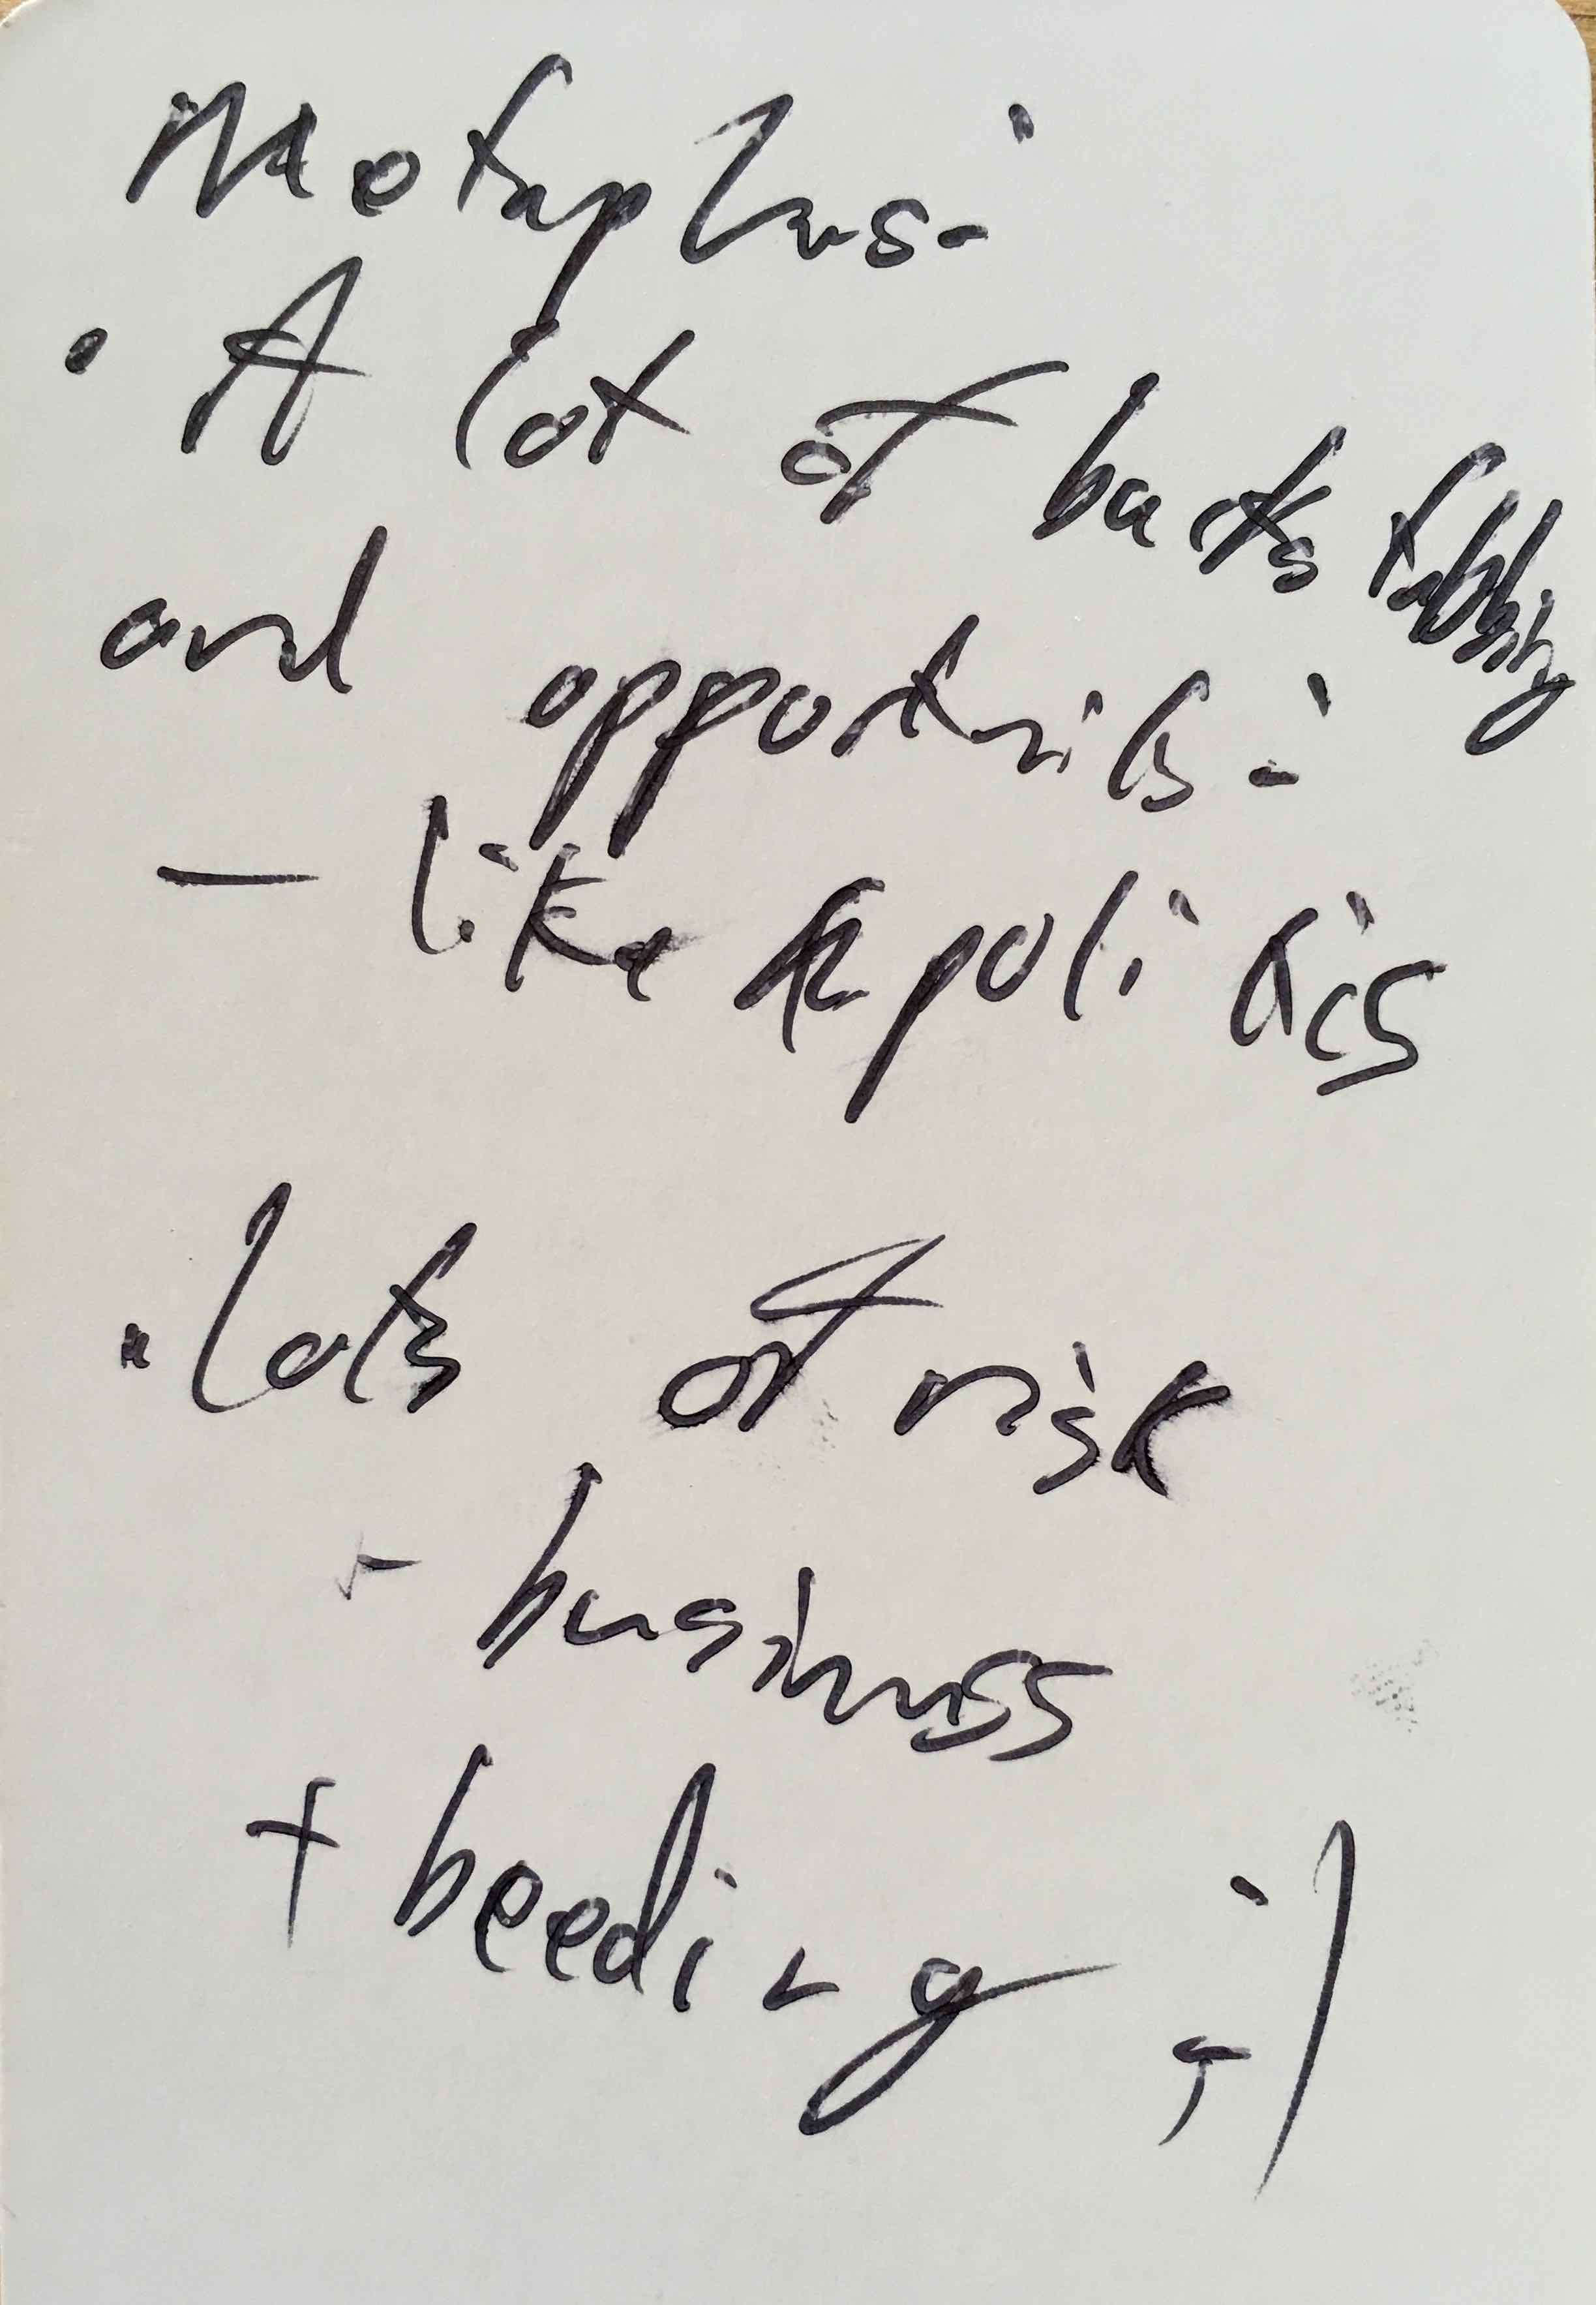 Metaphors:
• A lot of backstabbing
and opportunity:
— like politics
• lots of risk
- business
+ beeding ;)